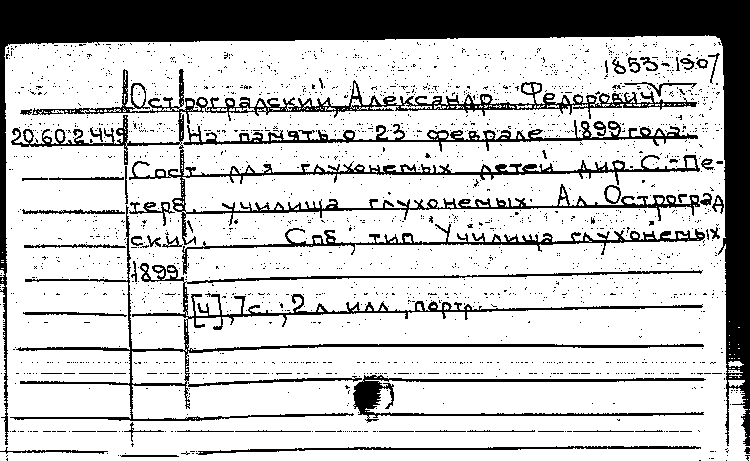 1853-1907
Остроградский, Александр Федорович,
20.60.2.449 На память о 23 феврале 1899 года.
Сост. для глухонемых детей дир. С.-Пе-
терб. училища глухонемых Ал. Остроград
ский. Спб, тип. Училища глухонемых,
1899
[4], 7 с.; 2 л. илл., портр.